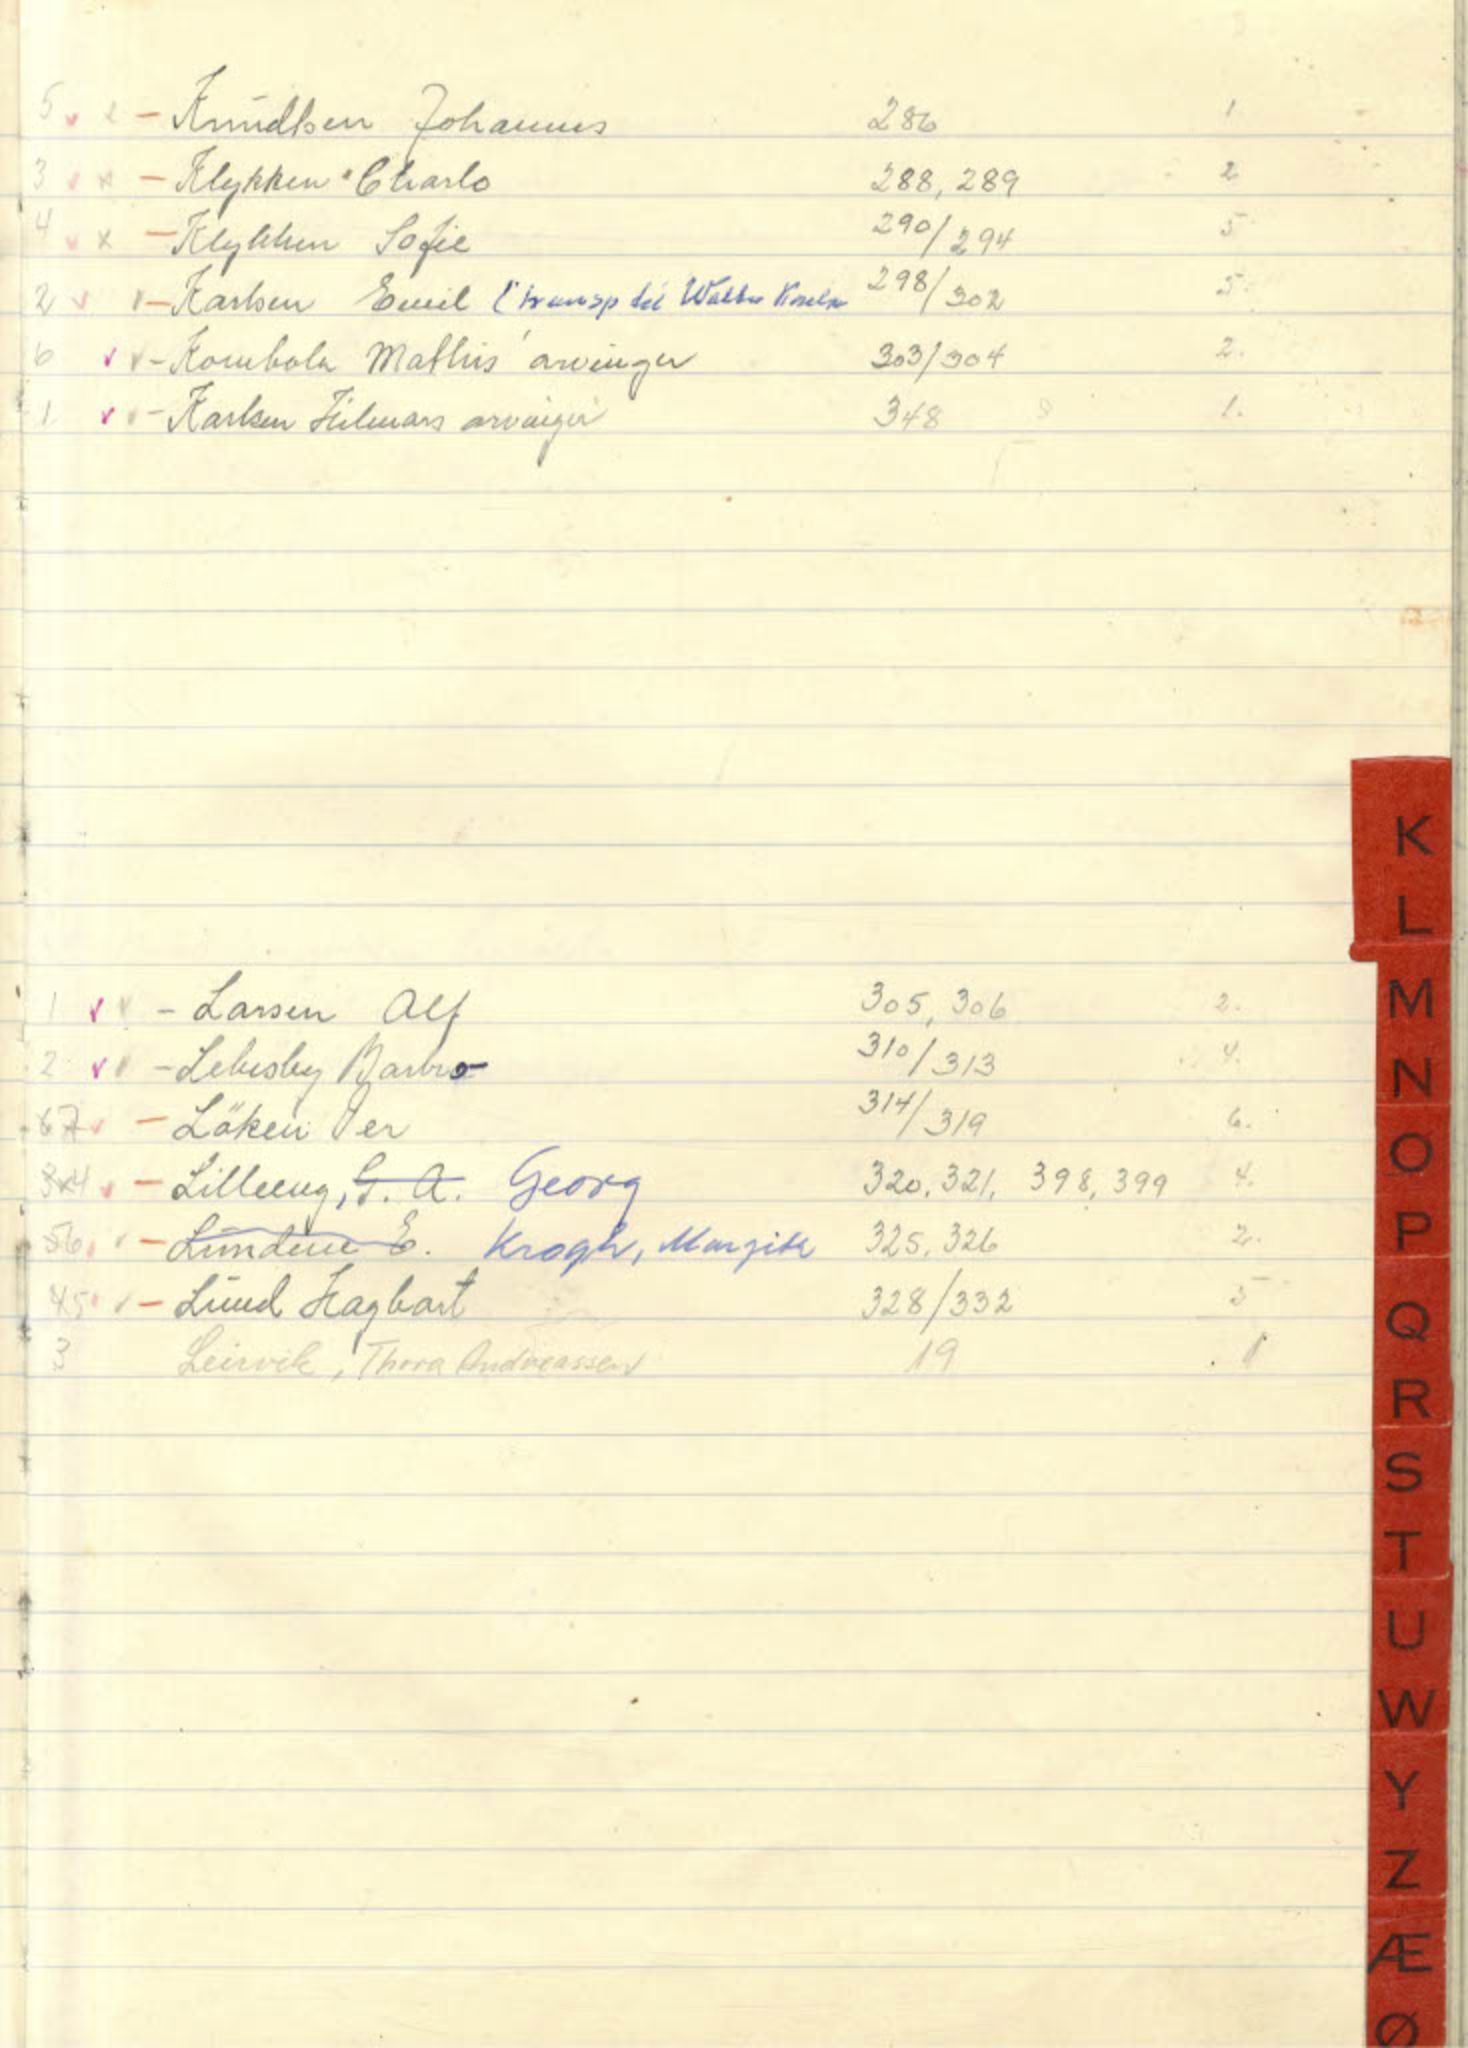 5 Knudtsen Johannes 286 1
3 Klykken Charlo 288, 289 2
4 x Klykken Sofie 290/294 5
2 Karlsen Emil (transp til 298/302 5.
6 Mathis' arvinger 303/304 2.
1 Karlsen Hilmars arvinger 348 1.
K
L
M
N
O
P
Q
R
S
T
U
W
Y
Z
Æ
Ø
1 - Larsen Alf 305, 306 2.
2 - Lebesby Barbro 310/313 4.
67 - Löken Per 314/319 6.
- Lilleeng, G. A. Georg 320, 321, 398, 399 4.
56 - Lundene E. Krogh, Margith 325, 326 2.
45 - Lund Hagbart 328/332 5
3 Leirvik, Thora Andreassen 19 1